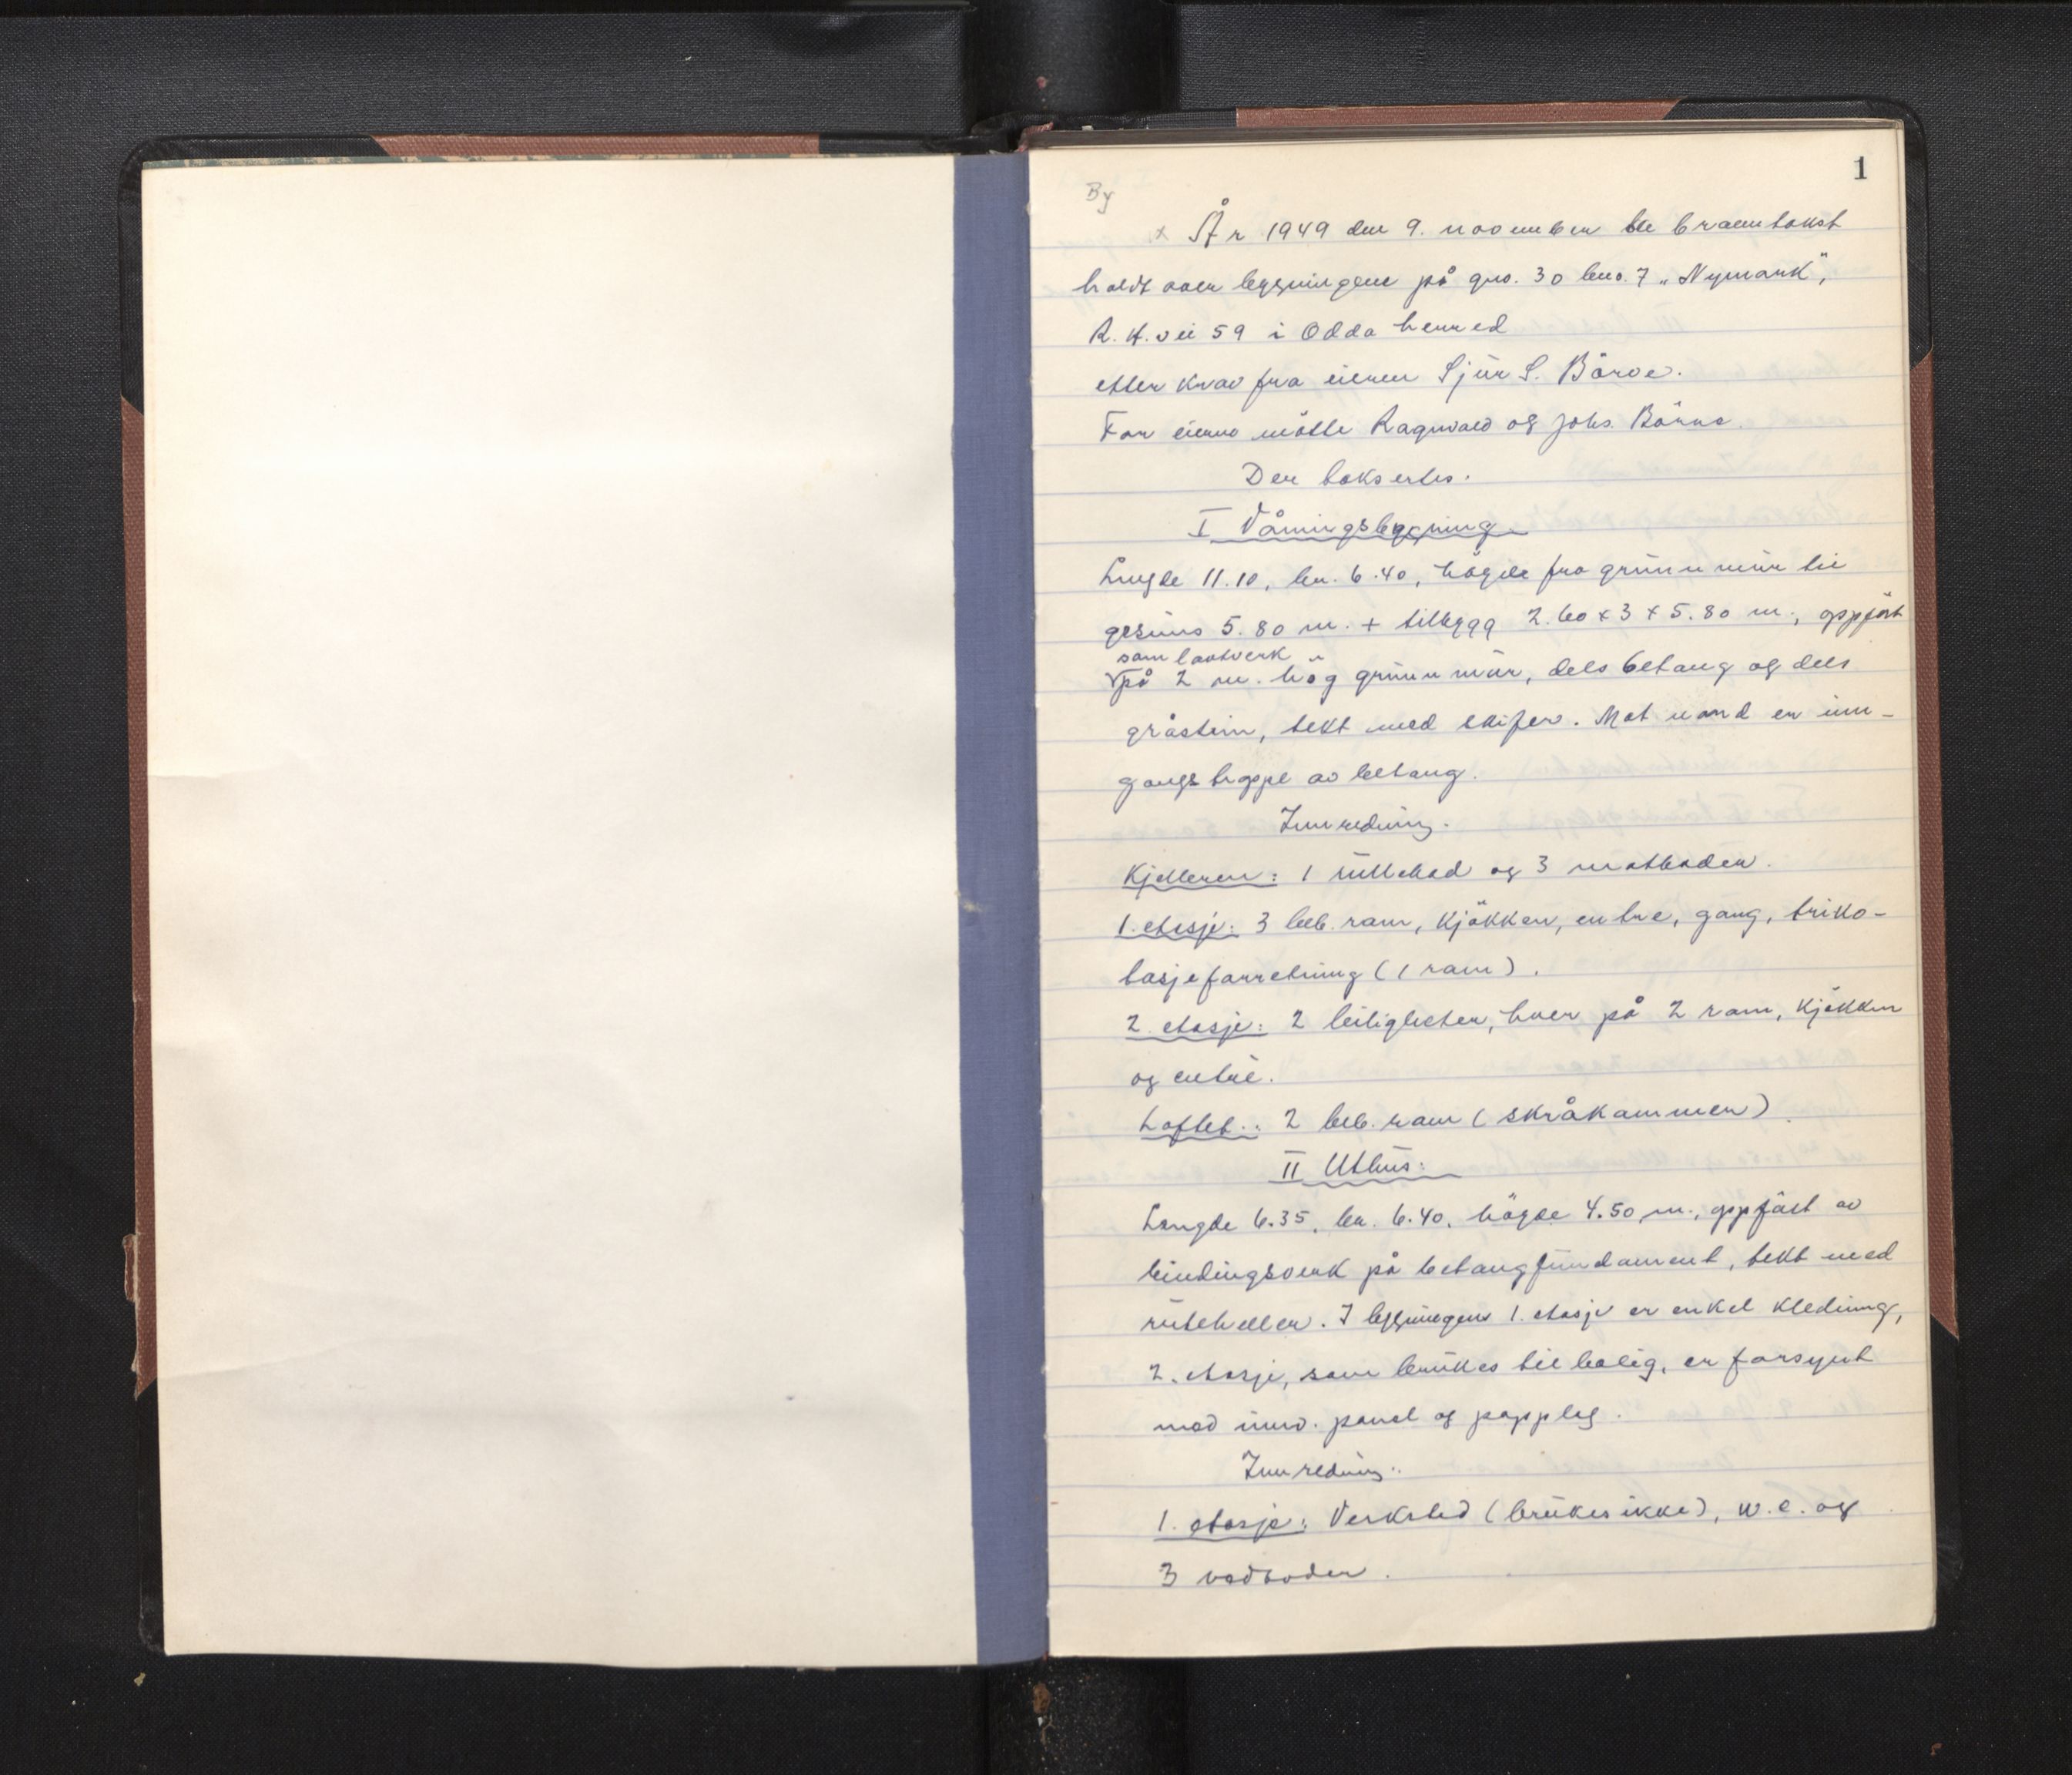 1
By
x År 1949 den 9. november ble branntakst
holdt over bygningene på gno. 30 bno. 7 „Nymark",
R. H. vei 59 i Odda herred
etter krav fra eieren Sjur S. Börve.
For eieren mötte Ragnvald og Johs. Börve.
Der takseres.
I Våningsbygning
Lengde 11.10, br. 6.40, högde fra grunnmur til
gesims 5.80 m. + tilbygg 2.60 x 3 x 5.80 m., oppfört
som laftverk
på 2 m. hög grunnmur, dels betong og dels
gråstein, tekt med skifer. Mot nord er inn-
gangstrappe av betong.
Innredning.
Kjelleren: 1 rullebod og 3 matboder.
1. etasje: 3 beb. rom, kjökken, entre, gang, triko-
tasjeforretning (1 rom).
2. etasje: 2 leiligheter, hver på 2 rom, kjökken
og entré.
Loftet: 2 beb. rom (skråkammer)
II Uthus:
Lengde 6.35, br. 6.40, högde 4.50 m., oppfört av
bindingsverk på betongfundament, tekt med
ruteheller. I bygningens 1. etasje er enkel kledning,
2. etasje, som brukes til bolig, er forsynt
med innv. panel og papplag.
Innredning:
1. etasje: Verksted (brukes ikke), w.c. og
3 vedboder.